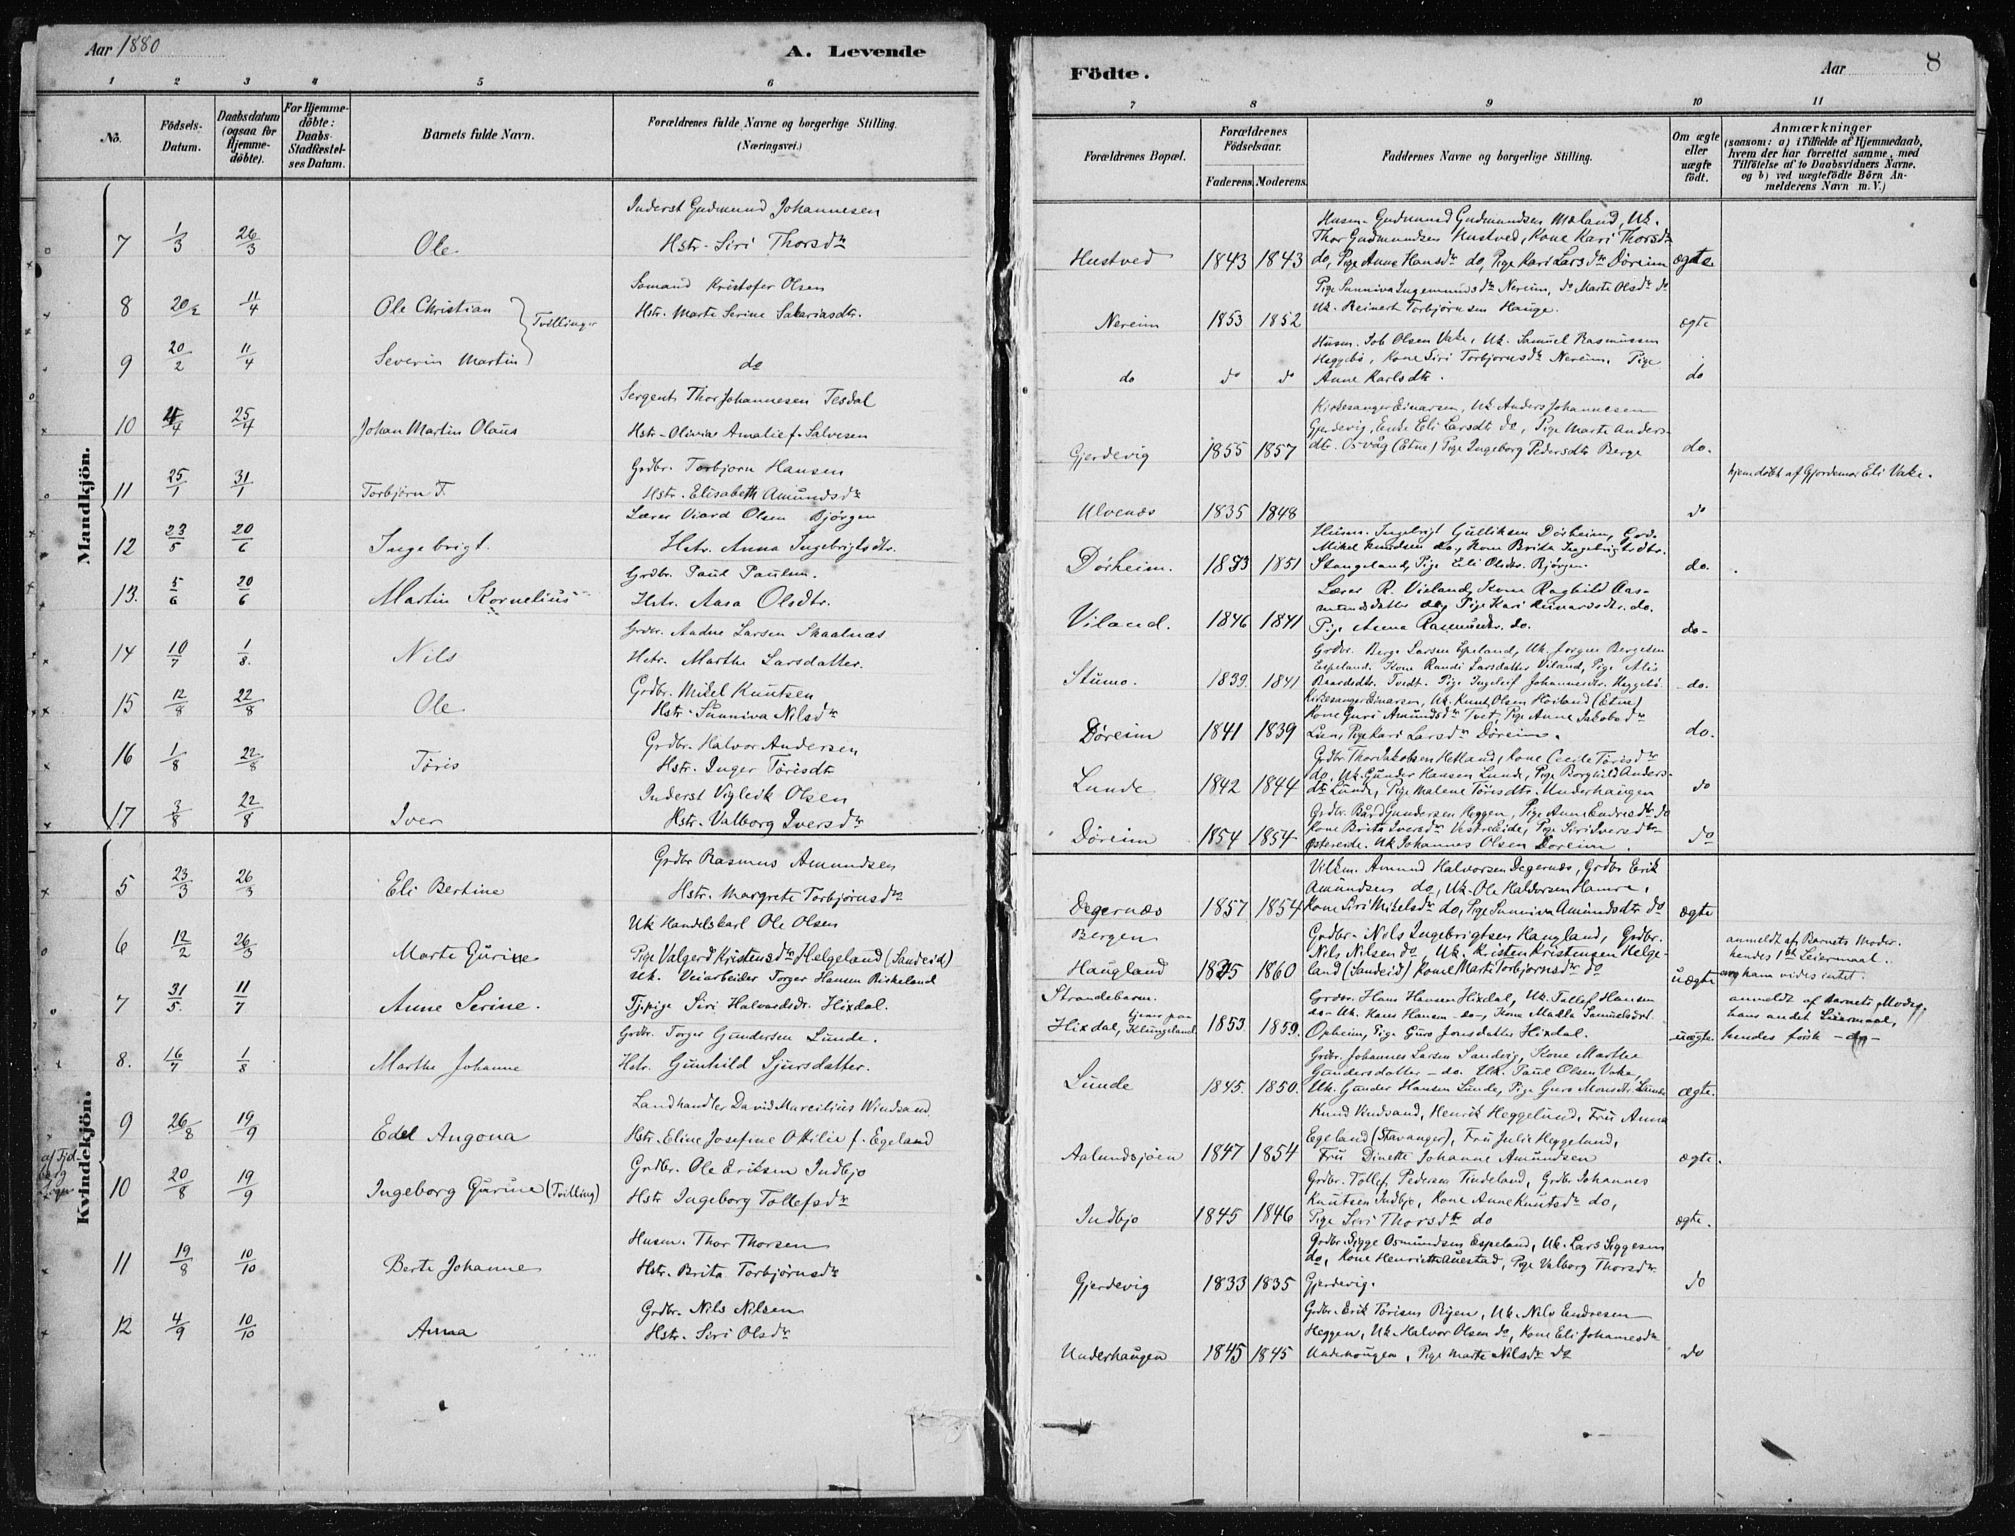 Aar 1880
A. Levende
1 2 3 4 5 6
No.
Födsels-Datum.
Daabsdatum (ogsaa for Hjemme-döbte).
For Hjemme-döbte: Daabs-Stadfæstel-ses Datum.
Barnets fulde Navn.
Forældrenes fulde Navne og borgerlige Stilling.
(Næringsvei.)
Mandkjön.
Inderst Gudmund Johannesen
7 1/3 26/3 Ole Hstr. Siri Thorsdtr
Sømand Kristofer Olsen
8 20/2 11/4 Ole Christian Hstr. Marte Serine Sakariasdtr.
Tvillinger
9 20/2 11/4 Severin Martin do
Sergent Thor Johannesen Tesdal
10 4/4 25/4 Johan Martin Olaus Hstr. Olivia Amalie f. Salvesen
Grdbr. Torbjørn Hansen
11 25/1 31/1 Torbjørn T. Hstr. Elisabeth Amundsdtr
Lærer Viard Olsen Bjørgen
12 23/5 20/6 Ingebrigt. Hstr. Anna Ingebrigtsdtr.
Grdbr. Paul Paulsen.
13. 5/6 20/6 Martin Kornelius Hstr. Aasa Olsdtr.
Grdbr. Aadne Larsen Skaalnæs
14 10/7 1/8. Nils Hstr. Marthe Larsdatter.
Grdbr. Mikel Knutsen
15 12/8 22/8 Ole Hstr. Sunniva Nilsdtr
Grdbr. Halvor Andersen
16 1/8 22/8 Töris Hstr. Inger Törisdtr
Inderst Vigleik Olsen
17 3/8 22/8 Iver Hstr. Valborg Iversdtr
Kvindekjön.
Grdbr Rasmus Amundsen
5 23/3 26/3 Eli Bertine Hstr. Margrete Torbjørnsdtr
Uk Handelskarl Ole Olsen
6 12/2 26/3 Marte Gurine Pige Valgerd Kristensdtr Helgeland (Sandeid)
sek. Veiarbeider Torger Hansen Birkeland
7 31/5. 11/7 Anne Serine. Tjpige Siri Halvardsdr. Hixdal.
Grdbr. Torger Gundersen Lunde.
8. 16/7 1/8 Marthe Johanne Hstr. Gunhild Sjursdatter.
Landhandler David Marcilius Windsand
9 26/8 19/9 Edel Angona Hstr. Eline Josefine Ottilie f. Egeland
Grdbr. Ole Eriksen Indbjo
10 20/8 19/9 Ingeborg Gurine (Tvilling) Hstr Ingeborg Tollefsdtr
Husm. Thor Thorsen
11 19/8 10/10 Berte Johanne Hstr. Brita Torbjørnsdtr
Grdbr. Nils Nilsen
12 4/9 10/10 Anna Hstr. Siri Olsdtr
Födte.
Aar 8
7 8 9 10 11
Forældrenes Bopæl.
Forældrenes Födselsaar.
Faderens. Moderens.
Faddernes Navne og borgerlige Stilling.
Om ægte eller uægte födt.
Anmærkninger
(saasom: a) i Tilfælde af Hjemmedaab, hvem der har forrettet samme, med Tilföielse af to Daabsvidners Navne. og b) ved uægtefödte Börn Anmelderens Navn m. V.)
Husm. Gudmund Gudmundsen Mæland, Uk.
Thor Gudmundsen Hustved, Kone Kari Thorsdtr
Hustved 1843 1843 do, Pige Anne Hansdtr do, Pige Kari Larsdtr Døreim ægte
Pige Sunniva Ingemundsdtr Nereim, do Marte Olsdtr do
Uk. Reinert Torbjørnsen Hauge.
Nereim 1853 1852 ægte
Husm. Job Olsen Vake, Uk. Samuel Rasmussen
Heggebö, Kone Siri Torbjørnsdtr Nereim, Pige
do do do Anne Karlsdtr. do
Kirkesanger Einarsen, Uk. Anders Johannesen
Gjerdevig, Enke Eli Larsdtr do, Pige Marte Anders-
Gjerdevig 1855 1857 dtr. Osvåg (Etne) Pige Ingeborg Pedersdtr Berge do.
hjemdöbt af Gjordemor Eli Vake.
Ulvenæs 1835 1848 do
Husm. Ingebrigt Gulliksen Dørheim, Grd.
Mikel Knudsen do, Kone Brita Ingebrigtsdtr.
Dørheim. 1853 1851 Stangeland, Pige Eli Olsdtr. Bjørgen. do.
Lærer R. Vieland, Kone Ragnhild Aas-
mundsdatter do, Pige Kari Reinardsdtr. do.
Viland. 1846 1841 Pige Anna Rasmusdtr. do. do-
Grdbr. Berge Larsen Espeland, Uk. Jørgen Bergesen
Espeland. Kone Randi Larsdatter Viland, Pige Alis
Stumo. 1839 1841 Baardsdtr. Tvedt. Pige Ingeleif Johannesdtr. Heggebö. do.
Kirkesanger Einarsen, Uk. Knut Olsen Høiland (Etne)
Kone Guri Amundsdtr Tvet, Pige Anne Jakobsdtr
Døreim 1841 1839 Lien, Pige Kari Larsdtr Døreim. do.
Grdbr Thor Jakobsen Hetland, Kone Cecile Törisdtr
do, Uk. Gunder Hansen Lunde, Pige Borghild Anders-
Lunde 1842 1844 dtr Lunde, Pige Malene Törisdtr. Underhaugen do
Grdbr. Bård Gundersen Heggen, Pige Anne Endresdtr do
Kone Brita Iversdtr Vestreeide, Pige Siri Iversdtr
Døreim 1854 1854 Østereide. Uk Johannes Olsen Døreim. do
Vilkm. Amund Halvorsen Degernæs, Grdbr Erik
Amundsen do, Uk. Ole Haldorsen Hamre,
Degernæs 1857 1854 Kone Siri Mikelsdtr do, Pige Sunniva Amundsdtr do ægte
Bergen Grdbr. Nils Ingebrigtsen Haugland, Grdbr.
Nils Nilsen do, Uk. Kristen Kristensen Helge-
Haugland 1845 1860 land (Sandeid) Kone Marte Torbjørnsdtr do uægte
anmeldt af Barnets Moder.
hendes 1ste Leiermaal.
om ham vides intet.
Strandebarm. Grdbr. Hans Hansen Hixdal, Uk. Tollef Hansen
tjener paa do Uk. Hans Hansen do, Kone Madla Samuelsdtr.
Hixdal, Klungeland. 1853. 1859. Opheim, Pige Guro Jonsdatter Hixdal. uægte.
anmeldt af Barnets Moder,
hans andet Leiermaal,
hendes förste - do -
Grdbr. Johannes Larsen Sandvig, Kone Marthe
Gundersdatter - do. Uk. Paul Olsen Vake,
Lunde 1845. 1850. Uk. Gunder Hansen Lunde, Pige Guro Monsdtr. Lunde ægte.
Knud Vindsand, Henrik Heggelund, Fru Anna
Egeland (Stavanger), Fru Julie Heggelund,
Aalundsjöen 1847 1854 Fru Dinette Johanne Amundsen ægte.
Grdbr. Tollef Pedersen Tindeland, Grdbr Johannes
Knutsen Indbjo, Kone Anne Knutsdtr do,
Indbjo 1845 1846 Pige Siri Thorsdtr do ægte.
Grdbr. Sigge Osmundsen Espeland, Uk. Lars Siggesen
do, Kone Henriette Auestad, Pige Valborg Thorsdtr.
Gjerdevig 1833 1835 Gjerdevig. do
Grdbr. Erik Torisen Rygen, Uk. Nils Endresen
Heggen, Uk. Halvor Olsen do, Kone Eli Johannesdtr
Underhaugen 1845 1845 Underhougen, Pige Marte Nilsdtr do do